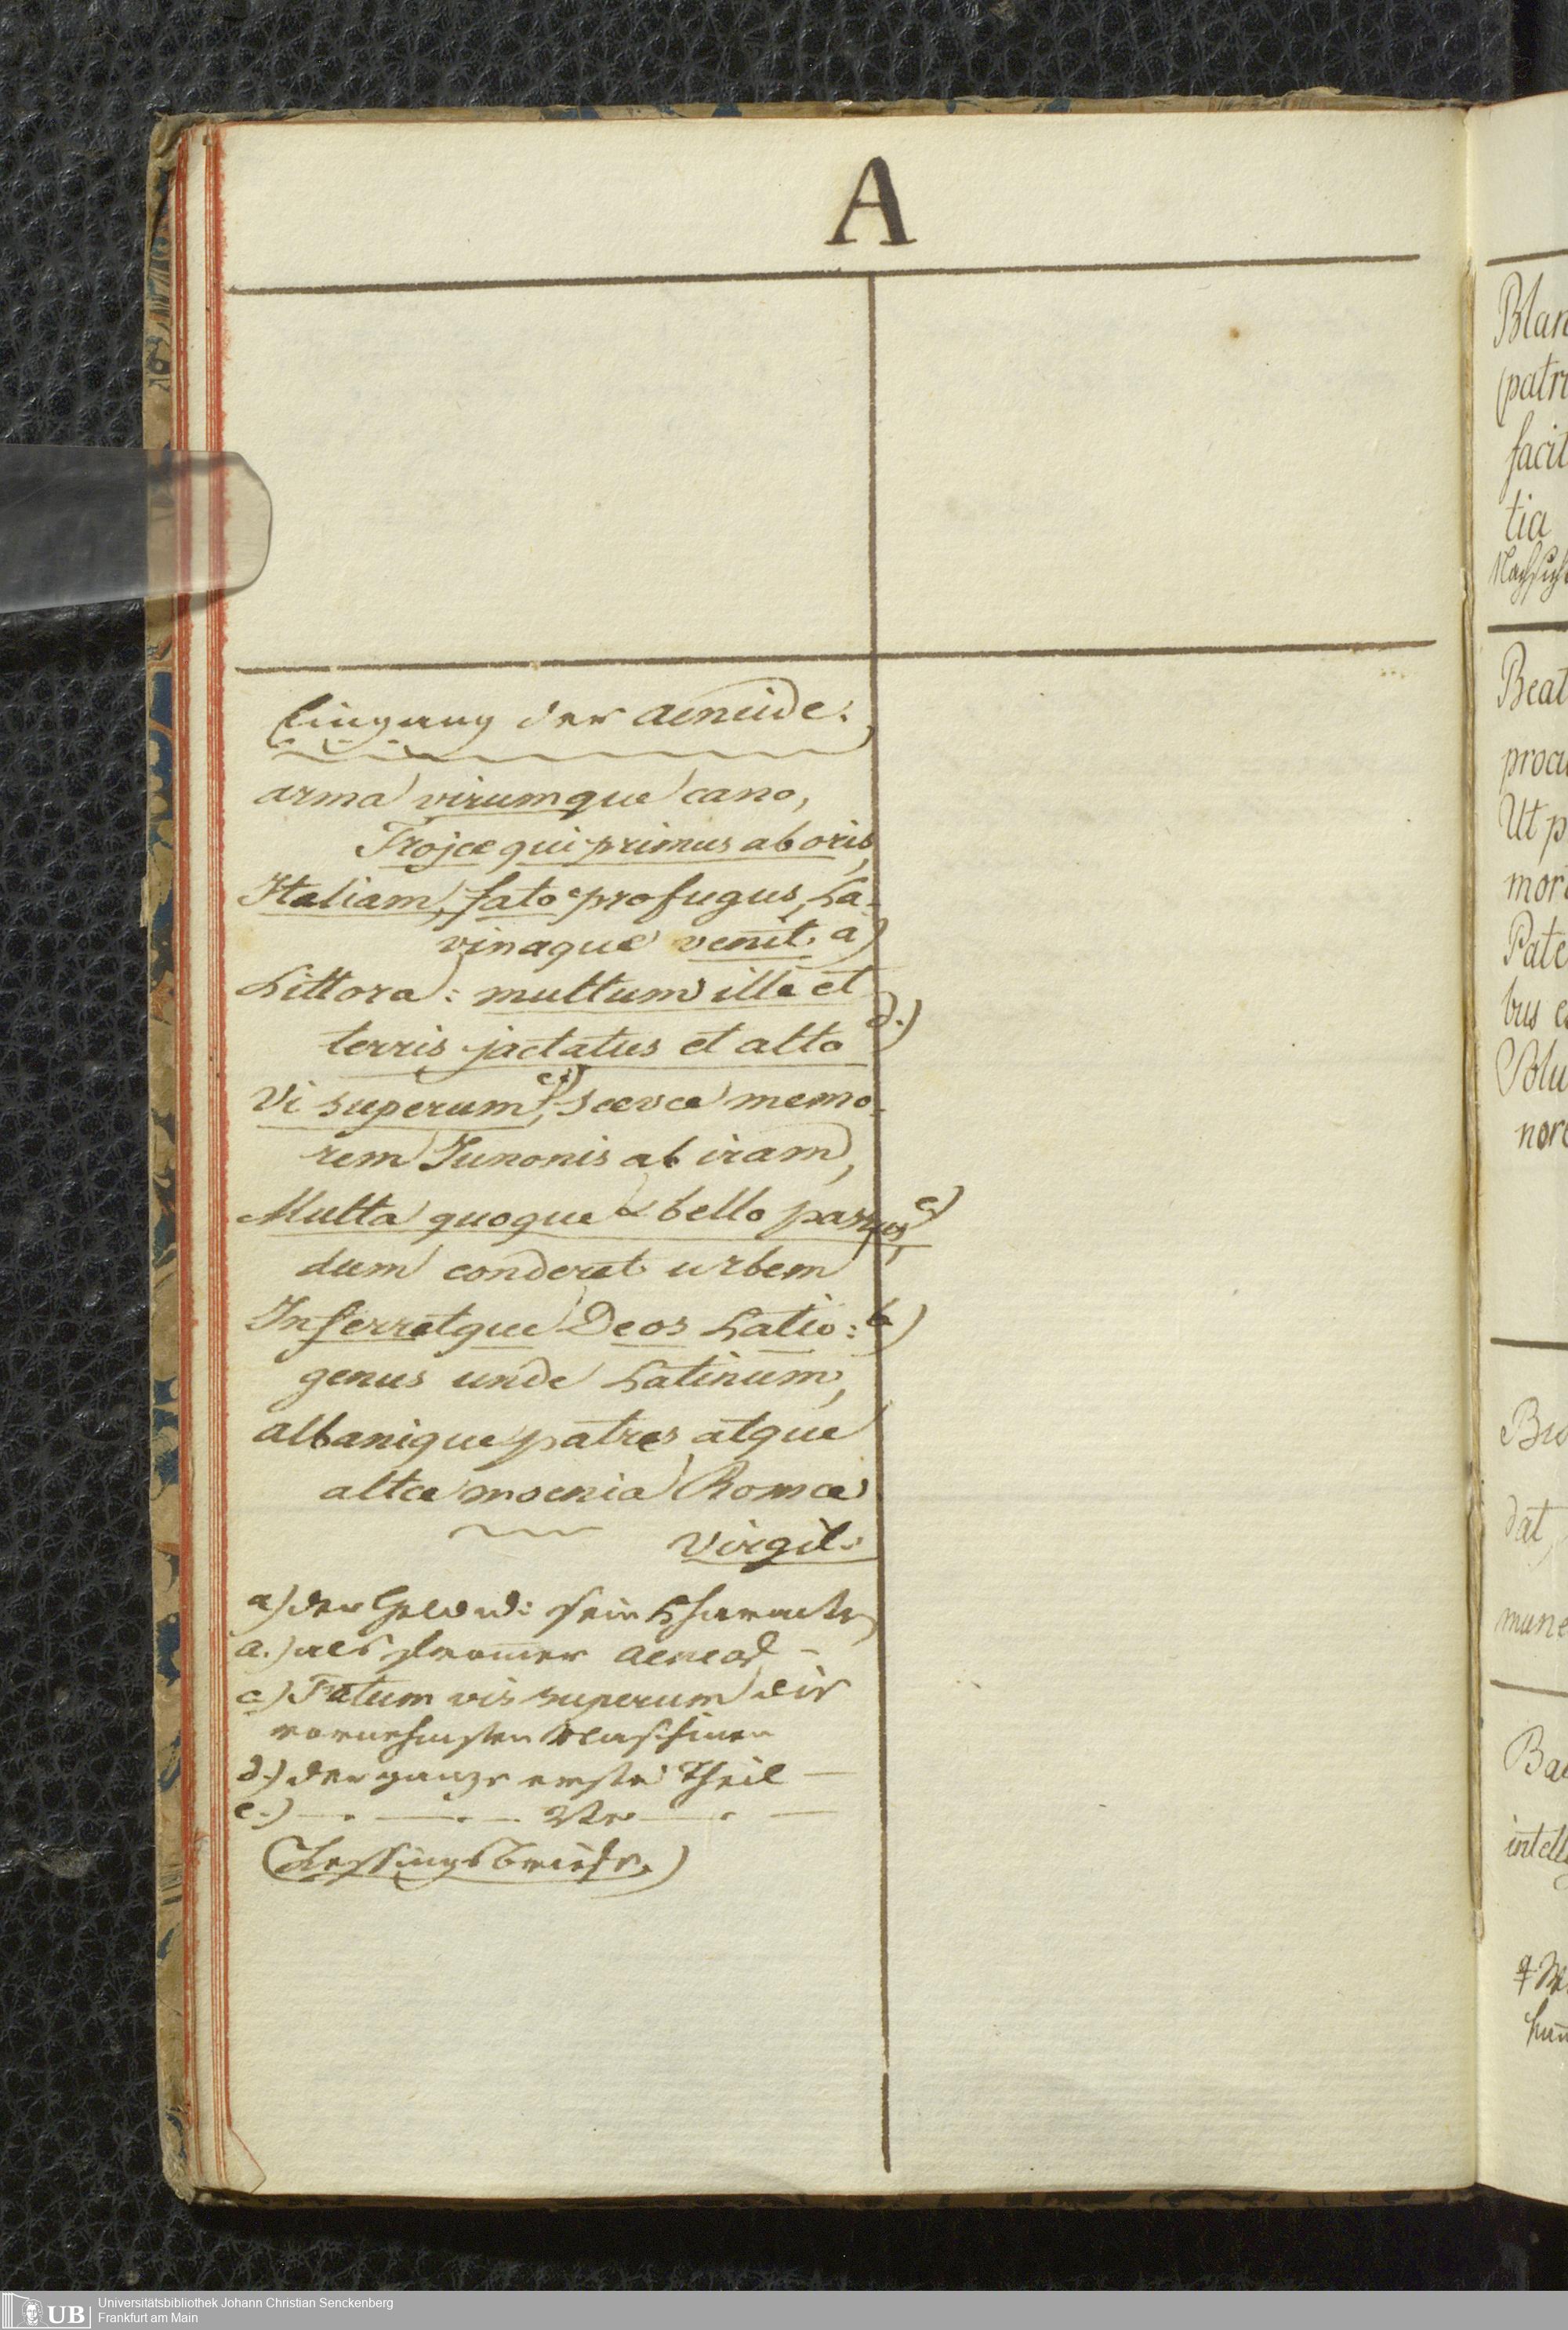 A
Eingang der Aeneide.
arma virumque cano,
Trojæ qui primus ab oris
Italiam, fato profugus, La-
vinaque venit a)
Littora: multum ille et
terris jactatus et alto d.)
Vi superum c), sævæ memo-
rem Junonis ob iram,
Multa quoque & bello passus, e)
dum conderet urbem
Inferretque Deos Latio: b)
genus unde Latinum,
albanique patres atque
altæ moenia Romæ
Virgil:
a) der Held u: sein Character
als frommer Aenead –
c) Fatum vis superum die
vornehmsten Maschinen
d.) der ganze erste Theil —
e.) —.—.— 2te —.—
(Lessings briefe.)
Blan
(patri
facit
tia
Beat
procu
Ut p
mor
Pate
bus e
Volu
nore
dat
mune
intell
UB Universitätsbibliothek Johann Christian Senckenberg
Frankfurt am Main